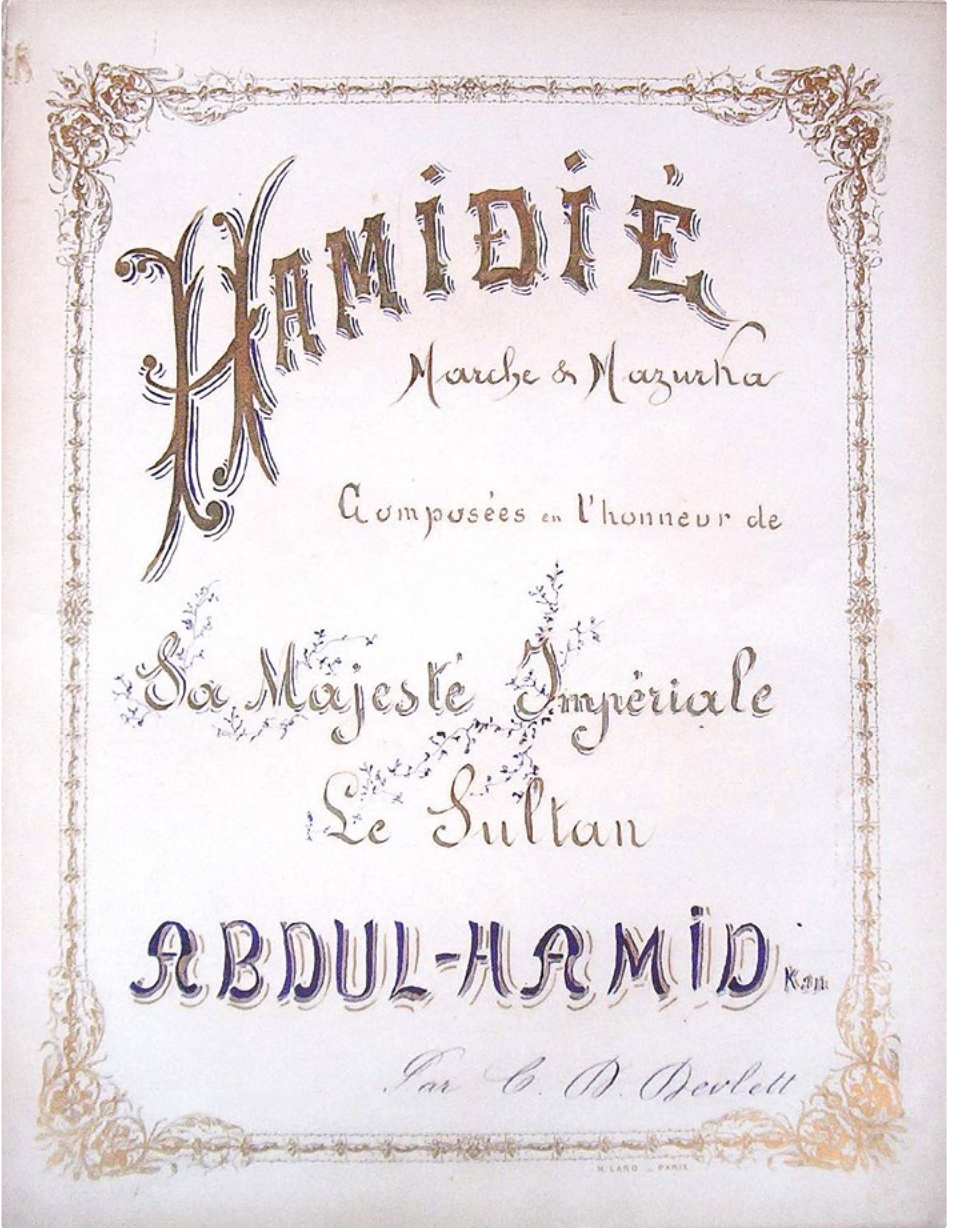 HAMİDİÉ
Marche & Mazurka
Composées en l'honneur de
Sa Majesté Impériale
Le Sultan
ABDUL-HAMİD Kan
Par C. D. Devlett
H. LARD _ PARIS